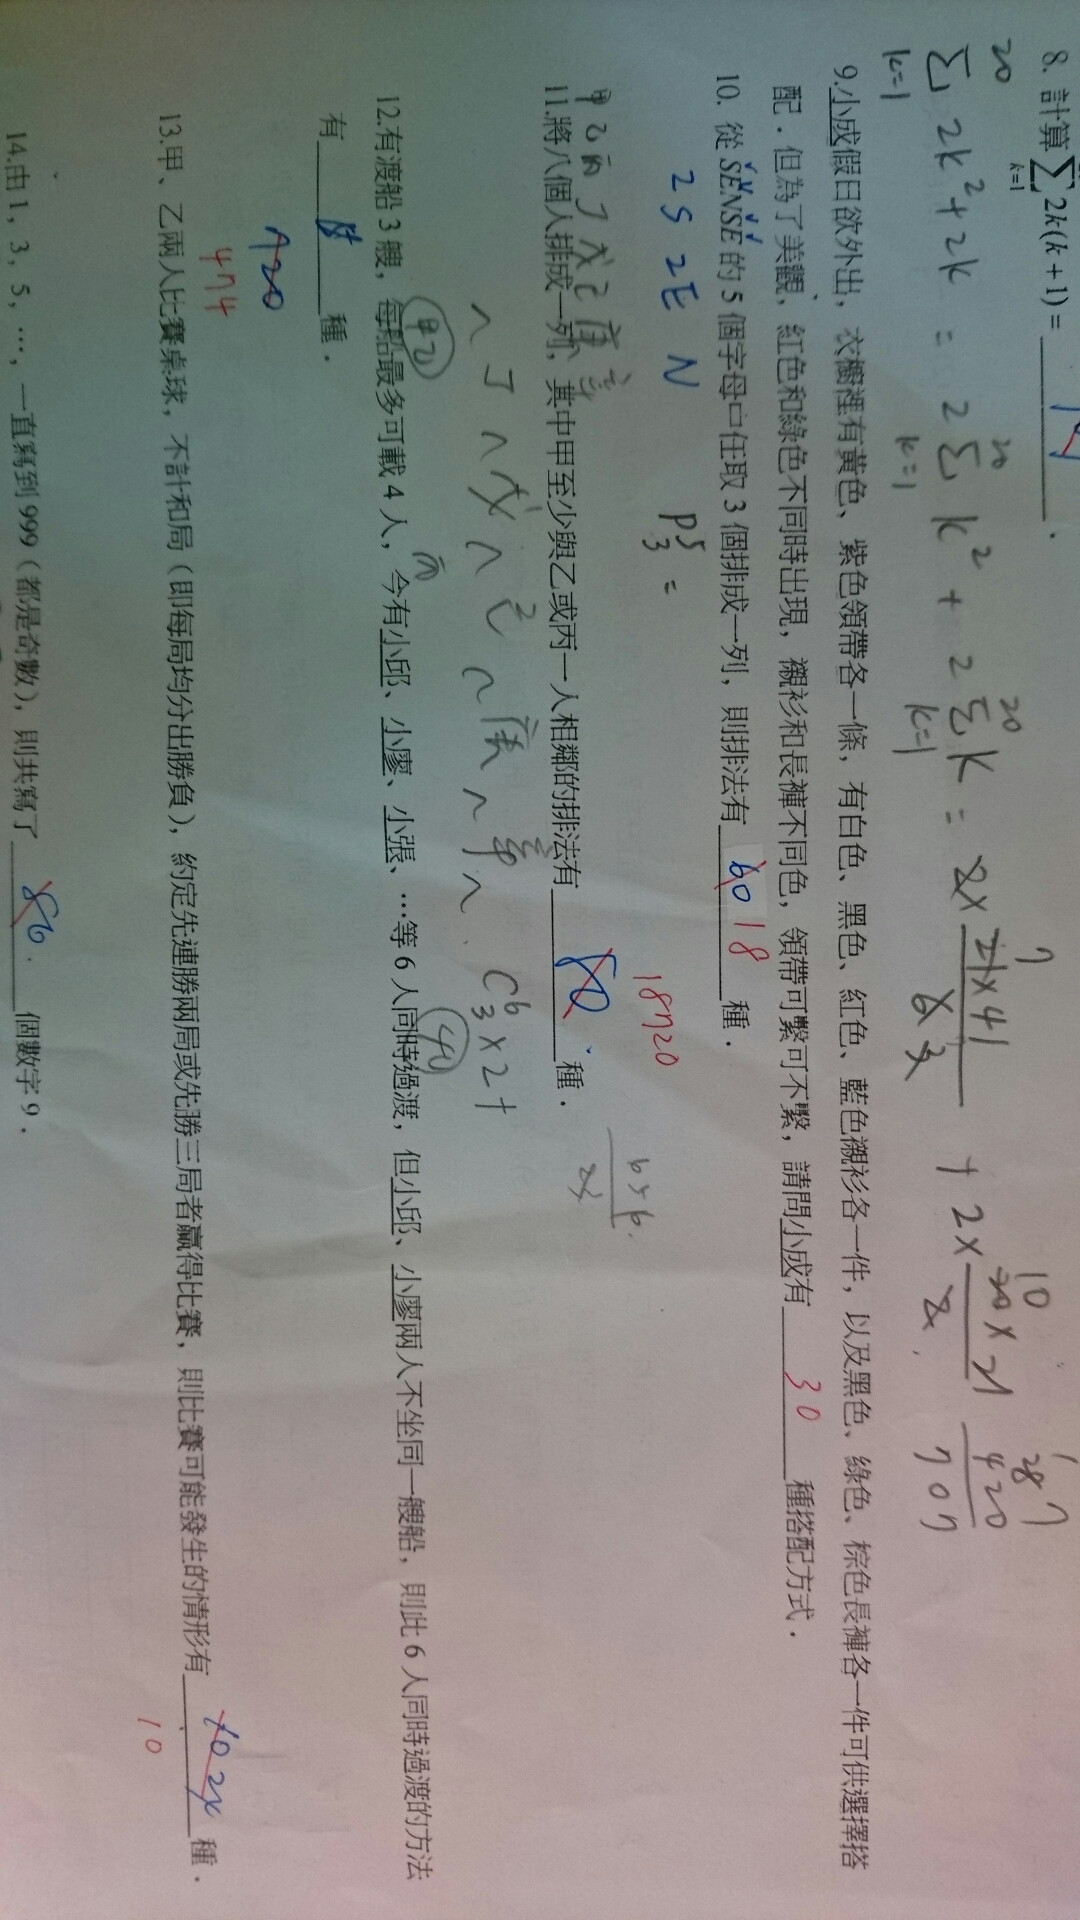 8. 計算 ∑ 2k(k+1) =
k=1
20
∑ 2k² + 2k = 2 ∑ k² + 2 ∑ k = 2×
k=1
20
k=1
20
k=1
21×41
+ 2×
20×21
10
28
420
707
9.小成假日欲外出，衣櫥裡有黃色、紫色領帶各一條，有白色、黑色、紅色、藍色襯衫各一件，以及黑色、綠色、棕色長褲各一件可供選擇搭
配．但為了美觀，紅色和綠色不同時出現，襯衫和長褲不同色，領帶可繫可不繫，請問小成有 30 種搭配方式．
10. 從 SENSE 的 5 個字母中任取 3 個排成一列，則排法有 60 18 種．
2S 2E N P⁵₃ =
18720
甲乙丙丁戊己庚辛
11.將八個人排成一列，其中甲至少與乙或丙一人相鄰的排法有 種．
6×6
甲乙
丙
^ 丁 ^ 戊 ^ 己 ^ 庚 ^ 辛 ^ . C⁶₃ × 2+
12.有渡船 3 艘，每船最多可載 4 人，今有小邱、小廖、小張、…等 6 人同時過渡，但小邱、小廖兩人不坐同一艘船，則此 6 人同時過渡的方法
有 種．
720
474
13.甲、乙兩人比賽桌球，不計和局（即每局均分出勝負），約定先連勝兩局或先勝三局者贏得比賽，則比賽可能發生的情形有 種．
10
14.由 1，3，5，…，一直寫到 999（都是奇數），則共寫了 86. 個數字 9．